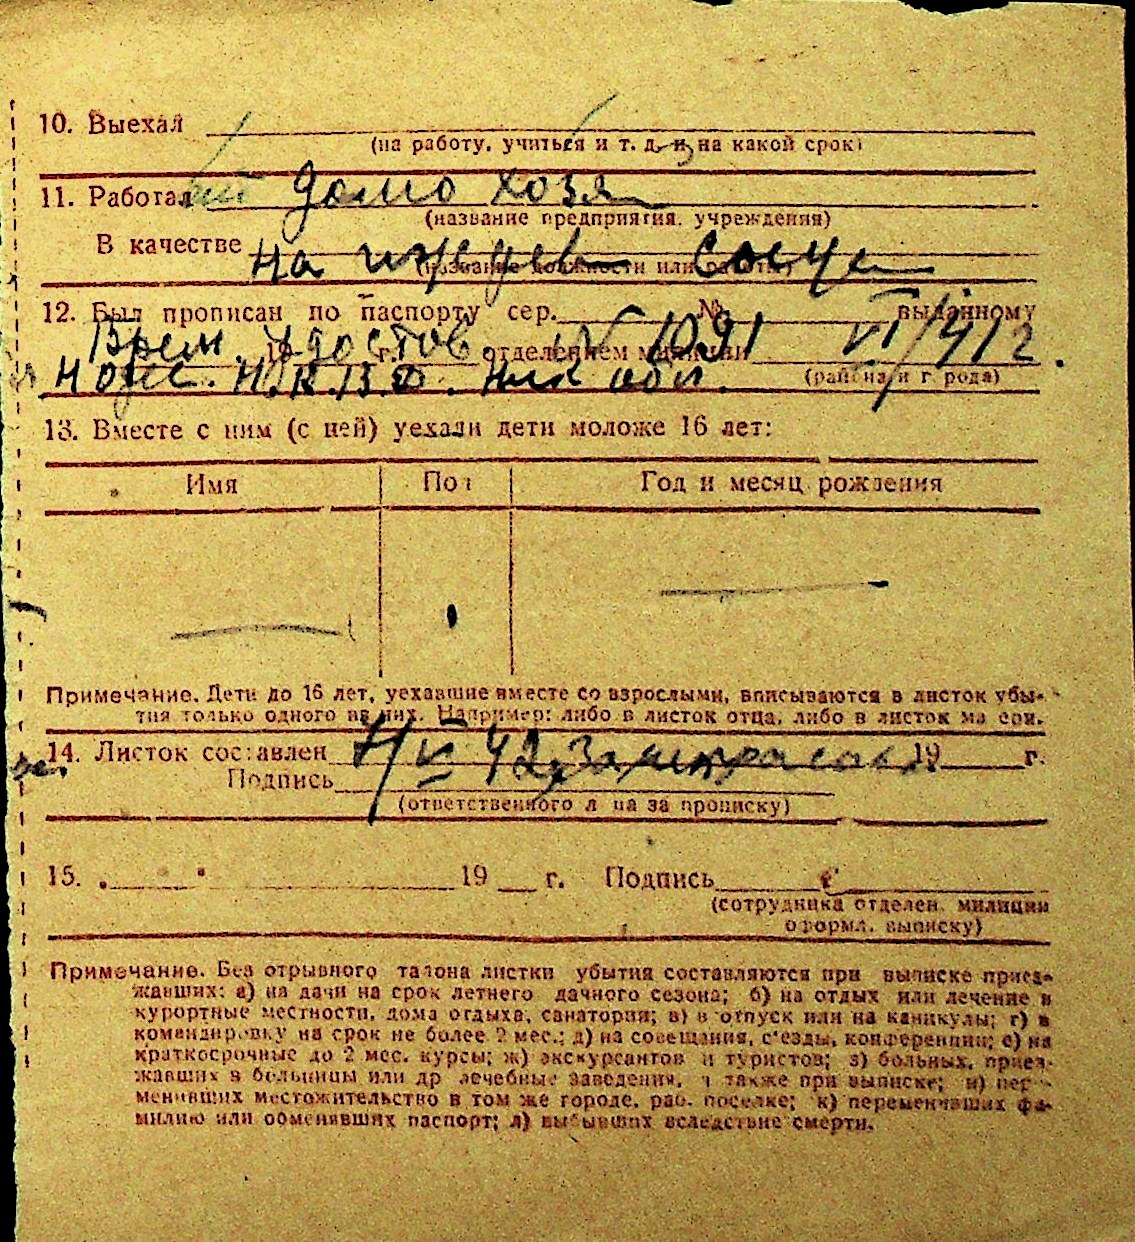 10. Выехал
(на работу, учиться и т. д. и на какой срок)
11. Работал домо хозя
(название предприятия, учреждения)
В качестве на иждев
(название должности или работы)
12. Был прописан по паспорту сер. № выданному
Врем. Удостов № 1091 VI/41 г.
19 г. отделением милиции
Н.К.В.Д. обл.
(района и города)
13. Вместе с ним (с ней) уехали дети моложе 16 лет:
Имя Пол Год и месяц рождения
Примечание. Дети до 16 лет, уехавшие вместе со взрослыми, вписываются в листок убы-
тия только одного из них. Например: либо в листок отца, либо в листок матери.
14. Листок составлен 42 19 г.
Подпись
(ответственного лица за прописку)
15. 19 г. Подпись
(сотрудника отделен. милиции
оформл. выписку)
Примечание. Без отрывного талона листки убытия составляются при выписке приез-
жавших: а) на дачи на срок летнего дачного сезона; б) на отдых или лечение в
курортные местности, дома отдыха, санатории; в) в отпуск или на каникулы; г) в
командировку на срок не более 2 мес.; д) на совещания, с'езды, конференции; е) на
краткосрочные до 2 мес. курсы; ж) экскурсантов и туристов; з) больных, приез-
жавших в больницы или др лечебные заведения, а также при выписке; и) пер-
менивших местожительство в том же городе, раб. поселке; к) переменивших фа-
милию или обменявших паспорт; л) выбывших вследствие смерти.